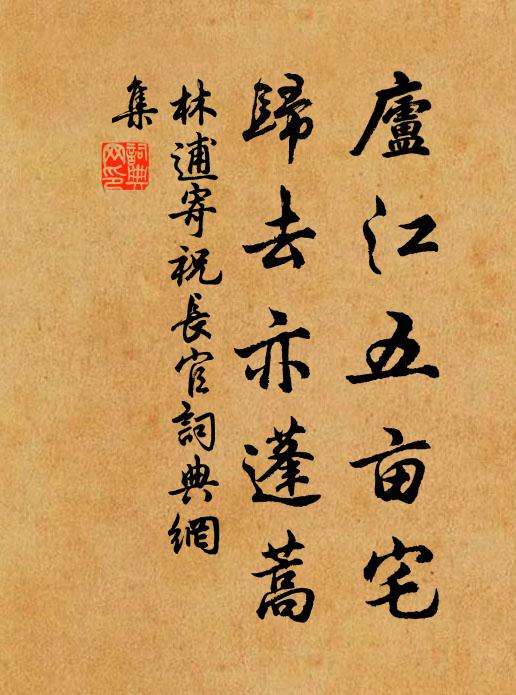 廬江五亩宅
歸去亦蓬蒿
林逋寄祝長官詞典網
集
詞典
网印